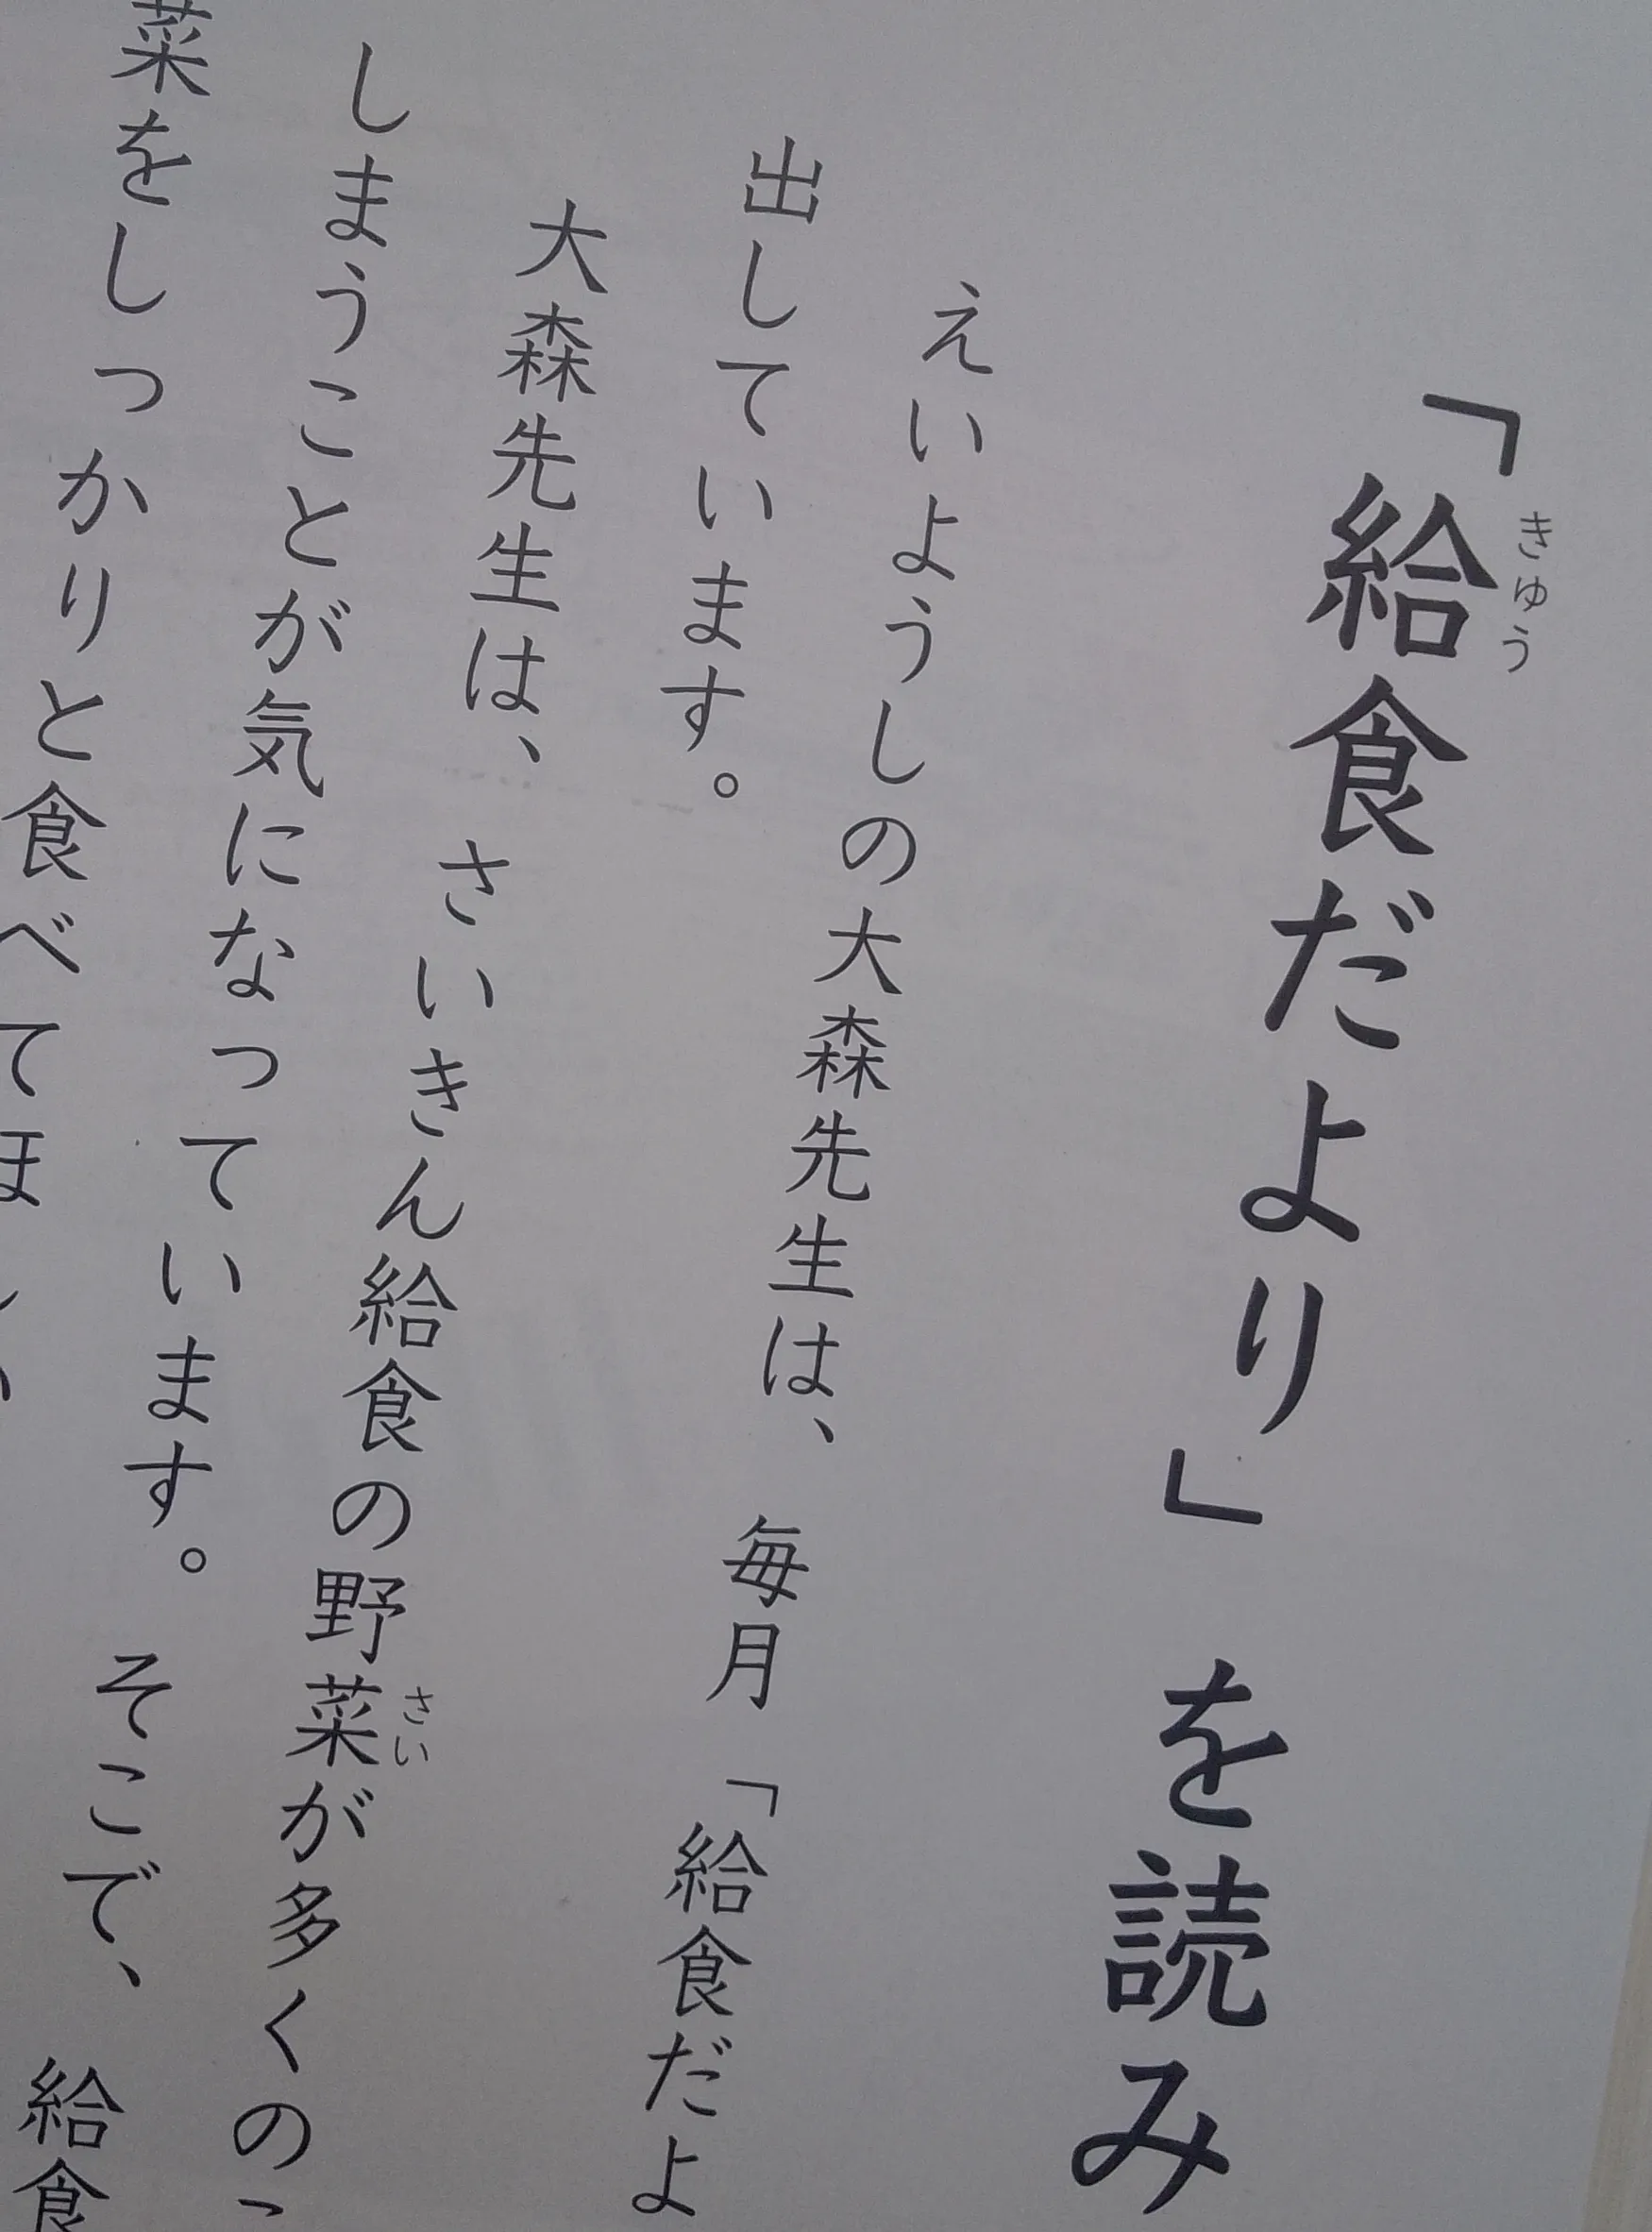 「給食だより」を読み
きゅう
えいようしの大森先生は、毎月「給食だよ
出しています。
大森先生は、さいきん給食の野菜が多くのこ
さい
しまうことが気になっています。そこで、給食
菜をしっかりと食べてほしい